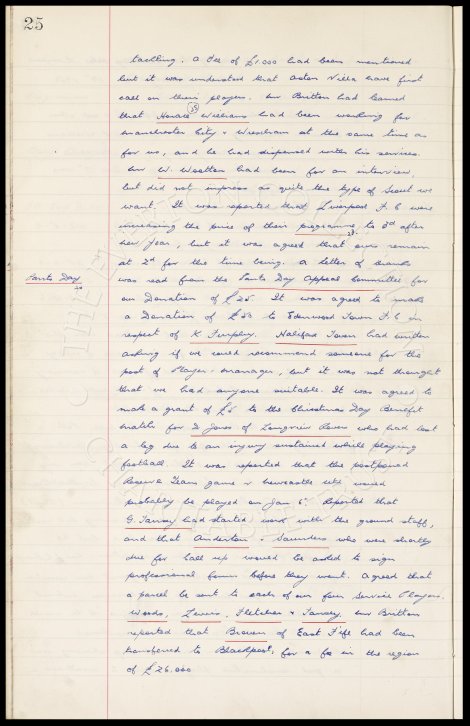 25
tackling. A fee of £1.000 had been mentioned
but it was understood that Aston Villa have first
call on their players. Mr Britton had learned
that Horace Williams had been working for
Manchester City & Wrexham at the same time as
for us, and he had dispensed with his services.
Mr W. Wootton had been for an interview,
but did not impress as quite the type of Scout we
want. It was reported that Liverpool F.C were
increasing the price of their programme to 3d after
New Year, but it was agreed that ours remain
at 2d for the time being. A letter of thanks
Lants Day
was read from the Lants Day Appeal Committee for
our Donation of £25. It was agreed to make
a Donation of to Town F.C in
respect of K Halifax Town had written
asking if we could recommend someone for the
post of Player-manager, but it was not thought
that we had anyone suitable. It was agreed to
make a grant of £5 to the Christmas Day Benefit
match for D Jones of Longview Rovers who had lost
a leg due to an injury sustained while playing
football. It was reported that the postponed
Reserve Team game v Newcastle Utd would
probably be played on Jan 6th. Reported that
G. Tansey had started work with the ground staff,
and that Anderton & Saunders who were shortly
due for call up would be asked to sign
professional forms before they went. Agreed that
a parcel be sent to each of our four Service Players.
Woods, Fletcher & Tansey. Mr Britton
reported that Brown of East Fife had been
transferred to Blackpool for a fee in the region
of £26.000